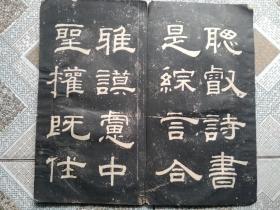 聰叡詩書
是綜言合
雅謨慮中
聖權既仕